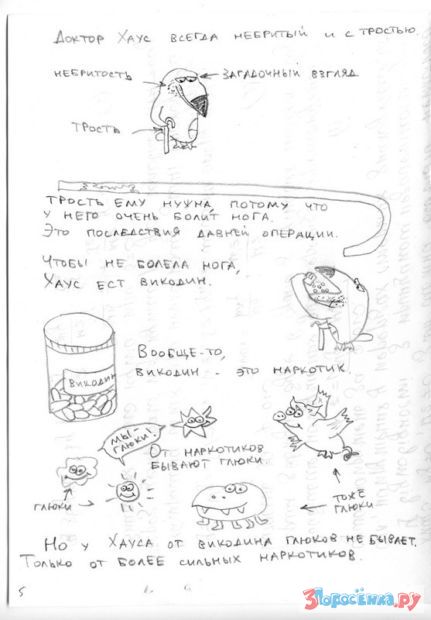 Доктор Хаус всегда небритый и с тростью.
небритость
загадочный взгляд
трость
Трость ему нужна потому что
у него очень болит нога.
Это последствия давней операции.
Чтобы не болела нога,
Хаус ест викодин.
Викодин
Вообще-то,
викодин - это наркотик.
Мы-
глюки!
От наркотиков
бывают глюки.
глюки
тоже
глюки
Но у Хауса от викодина глюков не бывает.
Только от более сильных наркотиков.
5
3Поросёнка.ру